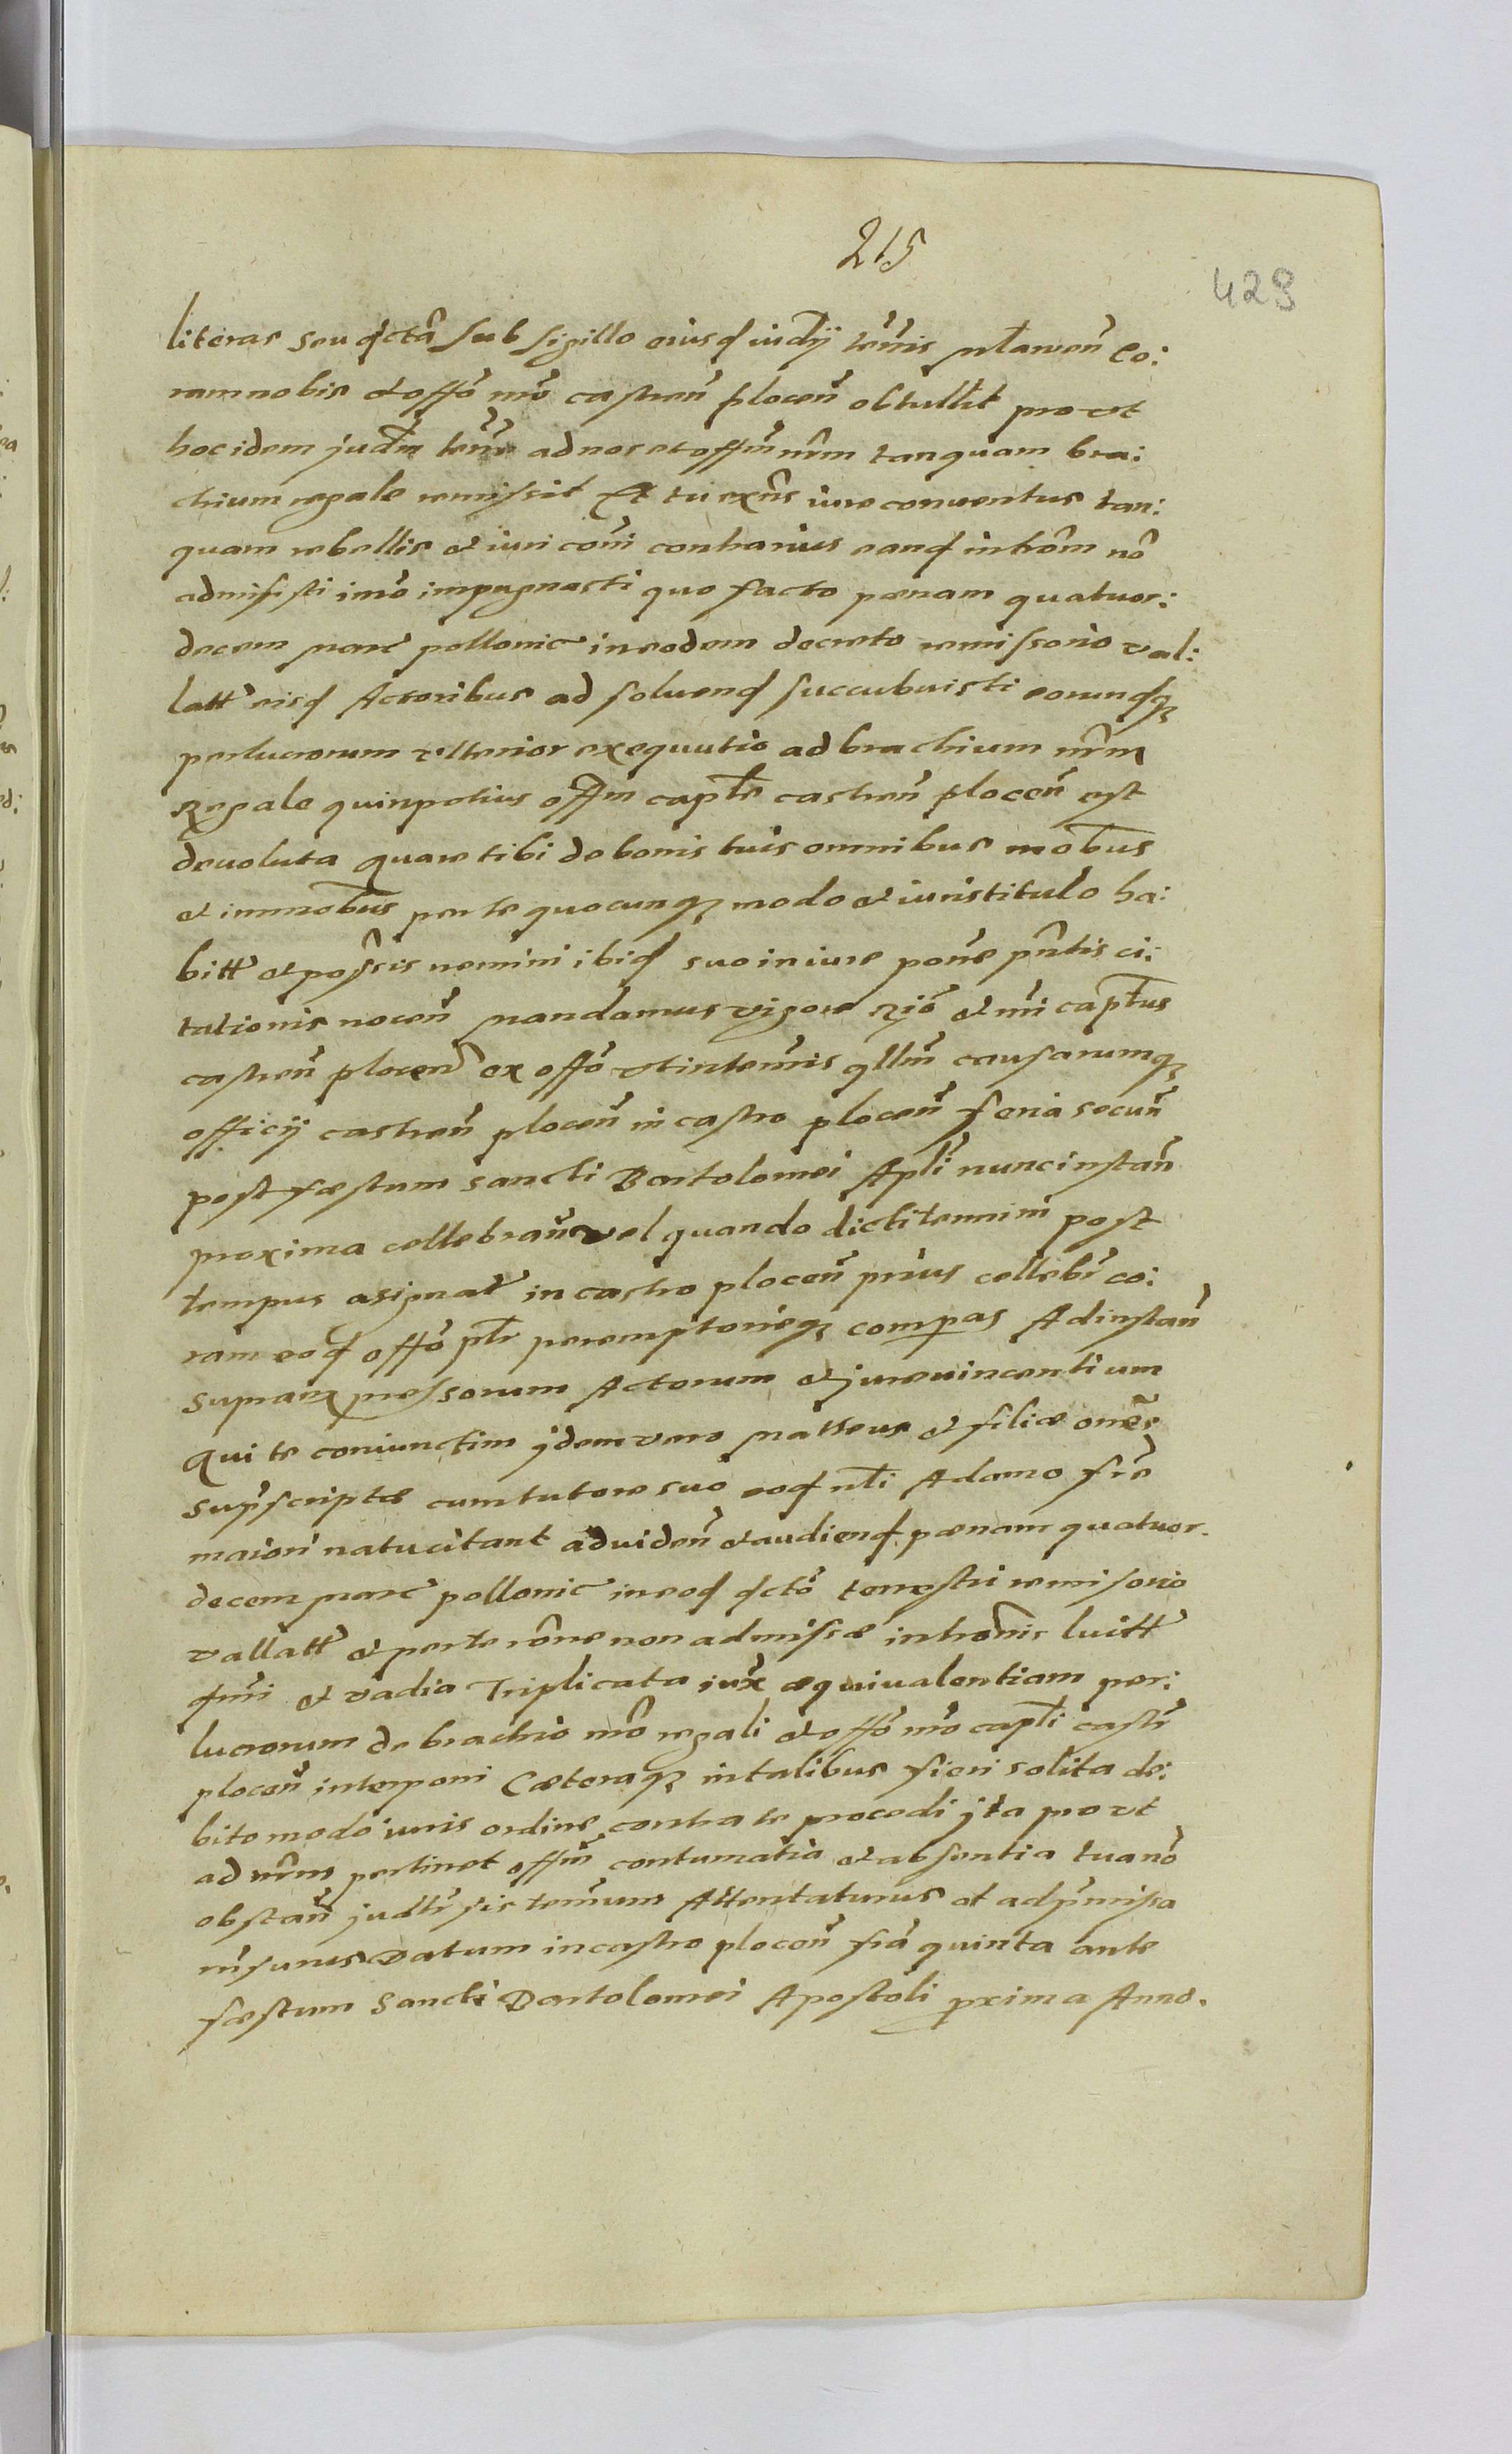 215
429
literas seu dctã sub sigillo eiusd iudÿ trẽris mlawen̄ co:
ram nobis et offõ nr̃o castren̄ plocen̄ obtullit prout
hoc idem judm̃ terr̃e ad nos et offm̃ nr̃m tanquam bra:
chium regale remissit Et tu exñs iure conuentus tan:
quam rebellis et iuri com̃i contrarius eand intrõm nõ
admisisti imõ impugnasti quo facto pœnam quatuor:
decem marc pollonic in eodem decreto remissorio val:
latt eisd Actoribus ad soluend succubuisti eorundq̃
perlucrorum vlterior exequutio ad brachium nr̃m
Regale quinpotius offm̃ captle castren̄ plocen̄ est
deuoluta quare tibi de bonis tuis omnibus mobus̃
et immobus̃ per te quocunq̃ modo et iuris titulo ha:
bitt et possis nemini ibid suo in iure pone pñtis ci:
tationis nocen̄ mandamus vigore rgiõ et nr̃i captlus
castren̄ plocen̄ ex offõ vt in termis qllm̃ causarumq̃
officij castren̄ plocen̄ in castro plocen̄ feria secun̄
post fæstum sancti Bartolomei Apli nunc instan̄
proxima cellebran̄ vel quando dicti termini post
tempus asignat in castro plocen̄ prius cellebr̃ co:
ram eod offõ plr peremptorieq̃ compas Ad instan̄
supraexpressorum Actorum et jureuincentium
Qui te coniunctim ÿdem vero matheus et filiæ om̃es
supr̃scriptæ cum tutore suo eod nli Adamo fr̃e
maiori natu citant ad viden̄ et audiend pœnam quatuor.
decem marc pollonic in eod dctõ terrestri remisorio
vallatt et per te rõne non admissæ intromis luitt
dm̃i et vadia Triplicata iux̃ æquiualentiam per:
lucrorum de brachio nr̃o regali et offõ nr̃o captli castr̃
plocen̄ interponi Cæteraq̃ in talibus fieri solita de:
bito modo iuris ordine contra te procedi ÿta prout
ad nr̃m pertinet offm̃ contumatia et absentia tua nõ
obstan̄ judtr̃ sis terminum Attentaturus et ad pr̃missa
r̃nsurus Datum in castro plocen̄ fr̃a quinta ante
fæstum Sancti Bartolomei Apostoli proxima Anno.